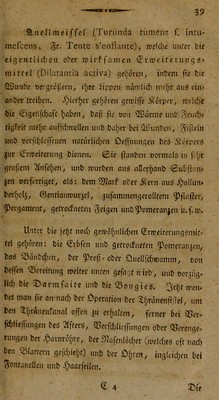 39
Quellmeissel (Turunda tumens s. intu-
mescens, Fr. Tente s'enflante), welche unter die
eigentlichen oder wirksamen Erweiterungs-
mittel (Dilatantia activa) gehören, indem sie die
Wunde vergrößern, ihre Lippen nämlich mehr aus ein-
ander treiben. Hierher gehören gewisse Körper, welche
die Eigenschaft haben, daß sie von Wärme und Feuch-
tigkeit mehr aufschwellen und daher bei Wunden, Fisteln
und verschlossenen natürlichen Oeffnungen des Körpers
zur Erweiterung dienen. Sie standen vormals in sehr
großem Ansehen, und wurden aus allerhand Substan-
zen verfertiget, als: dem Mark oder Kern aus Hollun-
derholz, Gentianwurzel, zusammengerolltem Pflaster,
Pergament, getrockneten Feigen und Pomeranzen u. s. w.
Unter die jetzt noch gewöhnlichen Erweiterungsmit-
tel gehören: die Erbsen und getrockneten Pomeranzen,
das Bändchen, der Preß- oder Quellschwamm, von
dessen Bereitung weiter unten gesagt wird, und vorzüg-
lich die Darmsaite und die Bougies. Jetzt wen-
det man sie an nach der Operation der Thränenfistel, um
den Thränenkanal offen zu erhalten, ferner bei Ver-
schließungen des Afters, Verschließungen oder Verenge-
rungen der Harnröhre, der Nasenlöcher (welches oft nach
den Blattern geschieht) und der Ohren, ingleichen bei
Fontanellen und Haarseilen.
C 4
Die